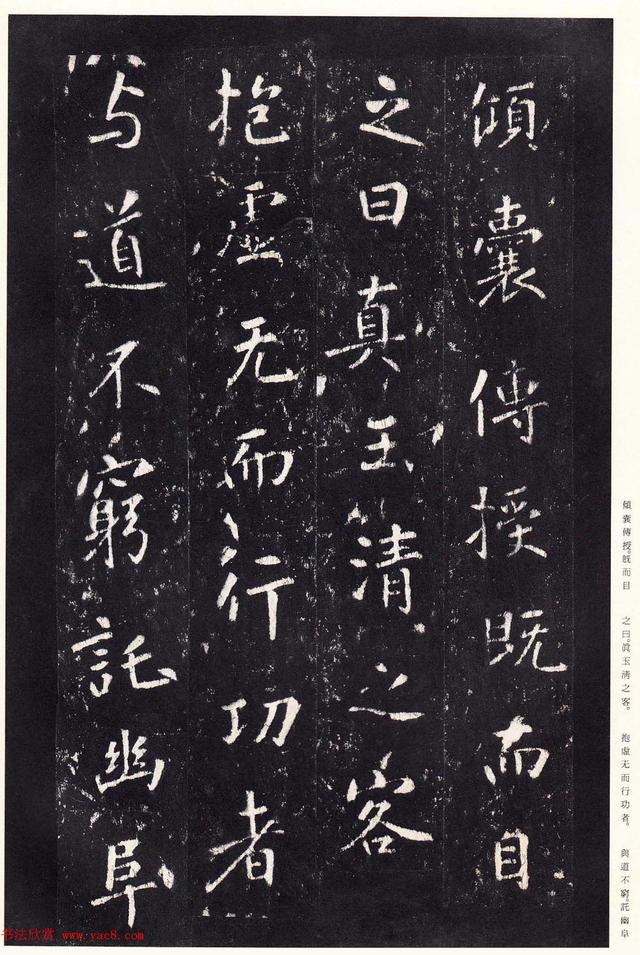 傾囊傳授既而目
之曰真玉清之客
抱虛无而行功者
与道不窮託幽阜
傾囊傳授。既而目　之曰。眞玉清之客。　抱虛无而行功者。　與道不窮。託幽阜
书法欣赏 www.yac8.com